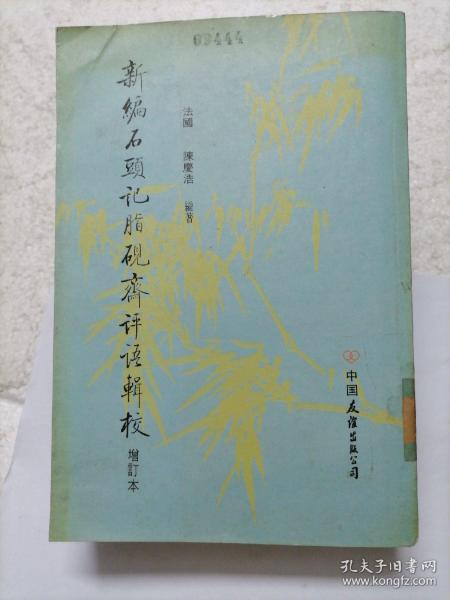 09444
新編石頭记脂硯齋评语輯校
增訂本
法國 陳慶浩 編著
中国友谊出版公司
孔夫子旧书网
www.kongfz.com